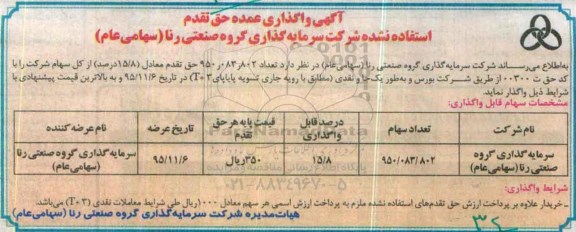 آگهی واگذاری عمده حق تقدم
استفاده نشده شرکت سرمایه گذاری گروه صنعتی رنا (سهامی عام)
به‌اطلاع می‌رساند شرکت سرمایه‌گذاری گروه صنعتی رنا (سهامی‌عام) در نظر دارد تعداد ۹۵۰٫۰۸۳٫۸۰۲ حق تقدم معادل (۱۵/۸درصد) از کل سهام شرکت را با
کد حق ت ۰۰۳۰۰ از طریق شرکت بورس و به‌طور یک‌جا و نقدی (مطابق با رویه جاری تسویه پایاپای T+۳) در تاریخ ۹۵/۱۱/۶ و به بالاترین قیمت پیشنهادی با
شرایط ذیل واگذار نماید.
مشخصات سهام قابل واگذاری:
نام شرکت تعداد سهام درصد قابل واگذاری قیمت پایه هر حق تقدم تاریخ عرضه نام عرضه کننده
سرمایه‌گذاری گروه صنعتی رنا (سهامی‌عام) ۹۵۰/۰۸۳/۸۰۲ ۱۵/۸ ۳۵۰ریال ۹۵/۱۱/۶ سرمایه‌گذاری گروه صنعتی رنا (سهامی‌عام)
شرایط واگذاری:
ـ خریدار علاوه بر پرداخت ارزش حق تقدم‌های استفاده نشده ملزم به پرداخت ارزش اسمی هر سهم معادل ۱۰۰۰ریال طی شرایط معاملات نقدی (T+۳) می‌باشد.
هیات‌مدیره شرکت سرمایه‌گذاری گروه صنعتی رنا (سهامی‌عام)
۰۲۱-۸۸۳۴۹۶۷۰-۵